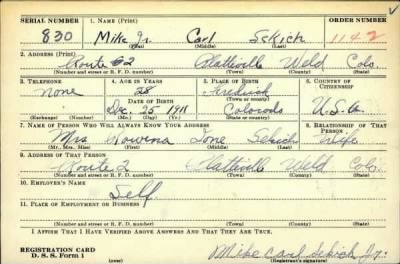 SERIAL NUMBER 1. NAME (Print) ORDER NUMBER
830 Mike Jr. Carl Sekich 1142
(First) (Middle) (Last)
2. ADDRESS (Print)
Route #2 Platteville Weld Colo.
(Number and street or R. F. D. number) (Town) (County) (State)
3. TELEPHONE 4. AGE IN YEARS 5. PLACE OF BIRTH 6. COUNTRY OF CITIZENSHIP
None 28 Frederick
DATE OF BIRTH (Town or county)
Dec. 25 1911 Colorado U.S.A.
(Exchange) (Number) (Mo.) (Day) (Yr.) (State or country)
7. NAME OF PERSON WHO WILL ALWAYS KNOW YOUR ADDRESS 8. RELATIONSHIP OF THAT PERSON
Mrs Rowena Ione Sekich Wife
(Mr., Mrs., Miss) (First) (Middle) (Last)
9. ADDRESS OF THAT PERSON
Route 2 Platteville Weld Colo.
(Number and street or R. F. D. number) (Town) (County) (State)
10. EMPLOYER'S NAME
Self
11. PLACE OF EMPLOYMENT OR BUSINESS
(Number and street or R. F. D. number) (Town) (County) (State)
I AFFIRM THAT I HAVE VERIFIED ABOVE ANSWERS AND THAT THEY ARE TRUE.
REGISTRATION CARD
D. S. S. Form 1 (over) Mike Carl Sekich Jr.
(Registrant's signature)